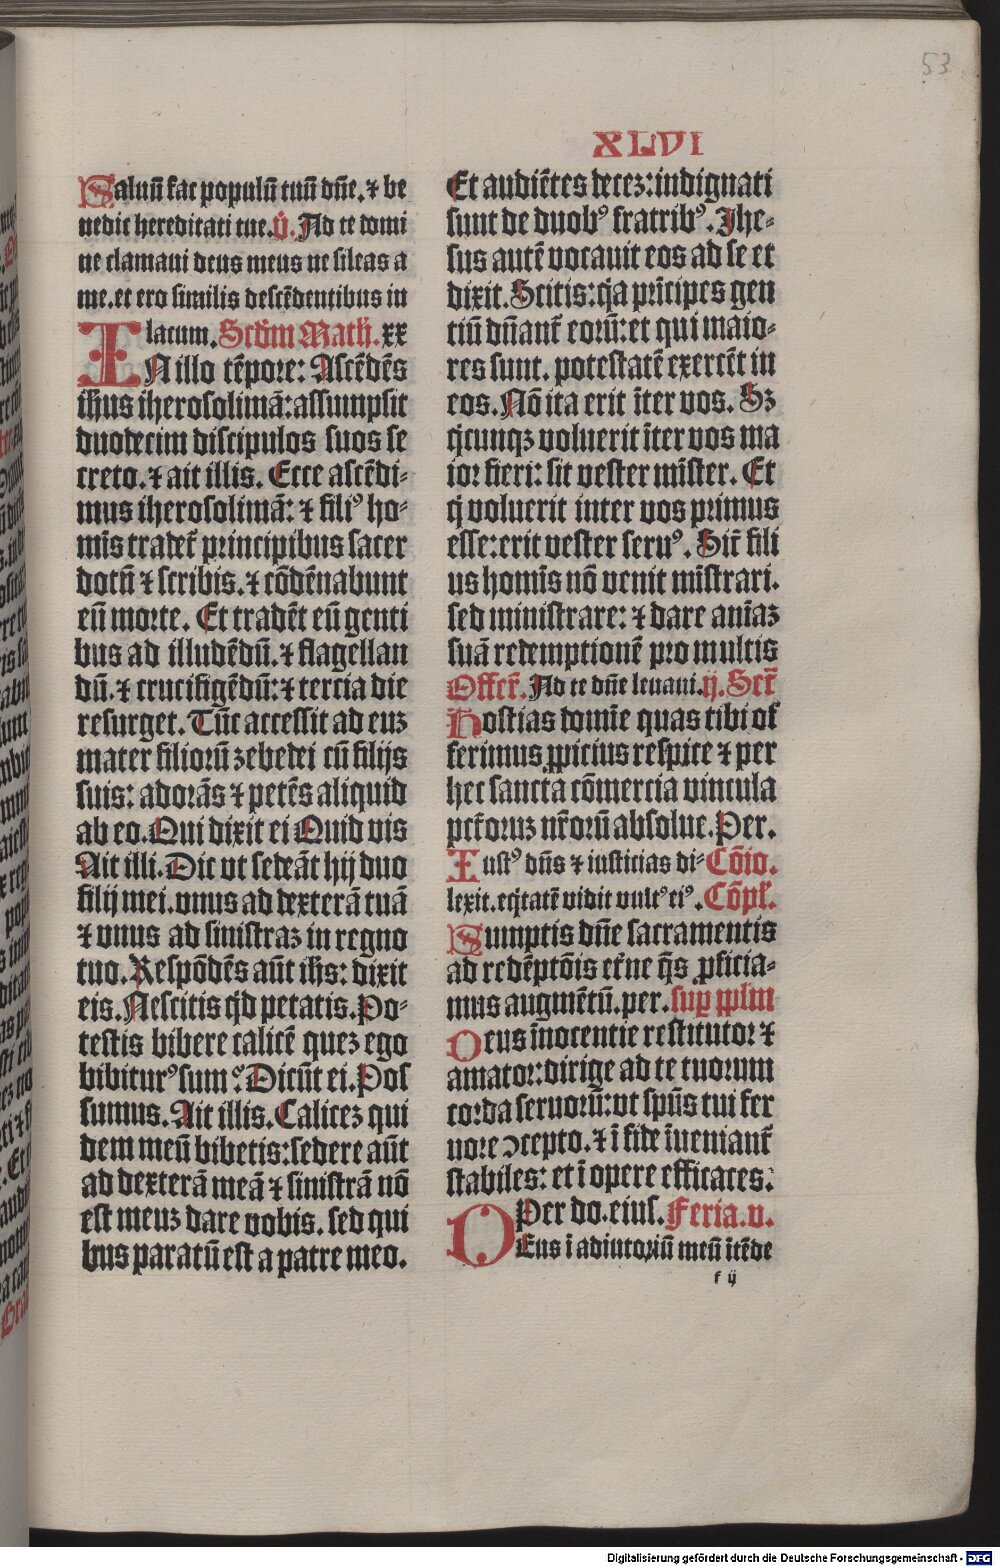 53
XLVI
Saluū fac populū tuū dn̄e. ⁊ be
nedic hereditati tue. V̄. Ad te domi
ne clamaui deus meus ne sileas a
me. et ero similis descēdentibus in
lacum. Scdm̄ Math̄. xx
IN illo tēpore: Ascēdēs
ih̄us iherosolimā: assumpsit
duodecim discipulos suos se
creto. ⁊ ait illis. Ecce ascēdi-
mus iherosolimā: ⁊ filiꝰ ho-
mīs tradet᷑ principibus sacer
dotū ⁊ scribis. ⁊ cōdēnabunt
eū morte. Et tradēt eū genti
bus ad illudēdū. ⁊ flagellan
dū. ⁊ crucifigēdū: ⁊ tercia die
resurget. Tūc accessit ad euꝫ
mater filiorū zebedei cū filijs
suis: adorās ⁊ petēs aliquid
ab eo. Qui dixit ei Quid vis
Ait illi. Dic vt sedeāt hij duo
filij mei. vnus ad dexterā tuā
⁊ vnus ad sinistraꝫ in regno
tuo. Respōdēs aūt ih̄s: dixit
eis. Nescitis qͥd petatis. Po-
testis bibere calicē queꝫ ego
bibiturꝰ sum? Dicūt ei. Pos
sumus. Ait illis. Caliceꝫ qui
dem meū bibetis: sedere aūt
ad dexterā meā ⁊ sinistrā nō
est meuꝫ dare vobis. sed qui
bus paratū est a patre meo.
Et audiētes deceꝫ: indignati
sunt de duobꝰ fratribꝰ. Jhe-
sus autē vocauit eos ad se et
dixit. Scitis: qͥa prīcipes gen
tiū dn̄ant᷑ eorū: et qui maio-
res sunt. potestatē exercēt in
eos. Nō ita erit īter vos. Sꝫ
qͥcunqꝫ voluerit īter vos ma
ior fieri: sit vester mīster. Et
qͥ voluerit inter vos primus
esse: erit vester seruꝰ. Sic̄ fili
us homīs nō venit mīstrari.
sed ministrare: ⁊ dare aīaꝫ
suā redemptionē pro multis
Offer᷑. Ad te dn̄e leuaui. ij. Secr᷑
Hostias domīe quas tibi of
ferimus ꝓpicius respice ⁊ per
hec sancta cōmercia vincula
pctōruꝫ nr̄orū absolue. Per.
Iustꝰ dn̄s ⁊ iusticias di- Cōio.
lexit. eqͥtatē vidit vultꝰ eiꝰ. Cōpl̄.
Sumptis dn̄e sacramentis
ad redēptōis et̄ne qs̄ ꝓficia-
mus augmētū. per. sup̄ pplm̄
Deus īnocentie restitutor ⁊
amator: dirige ad te tuorum
corda seruorū: vt spūs tui fer
uore ↄcepto. ⁊ ī fide īueniant᷑
stabiles: et ī opere efficaces.
Per do. eius. Feria. v.
DEus ī adiutoriū meū ītēde
f ij
Digitalisierung gefördert durch die Deutsche Forschungsgemeinschaft - DFG